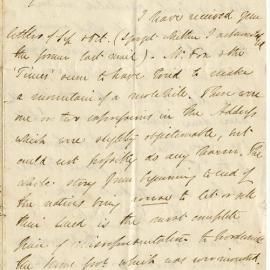 I have received your
letters of Sep & Oct. (I forget whether I
the former last mail). Mr Fox & the
Times seem to have tried to make
a mountain of a molehill. There were
one or two expressions in the Address
which were slightly objectionable, but
could not possibly do any harm. The
whole story from beginning to end of
the natives being to let or sell
their land is the most complete
piece of misrepresentation to
the home govt. which was